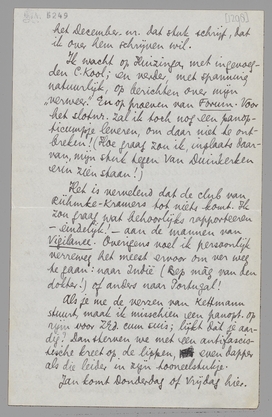 B249
het December-nr. dat stuk schrijf, dat
ik over hem schrijven wil.
Ik wacht op Huizinga, met ingevoeg-
den C. Kool; en verder, met spanning
natuurlijk, op berichten over mijn
„verweer". En op groenen van Forum. Voor
het slotnr. zal ik toch nog een panop-
ticumpje leveren, om daar niet te ont-
breken! (Hoe graag zou ik, inplaats daar-
van, mijn stuk tegen Van Duinkerken
erin zien staan!)
Het is vervelend dat de club van
Rühmke-Kramers tot niets komt. Ik
zou graag wat behoorlijks rapporteeren
– eindelijk! – aan de mannen van
Vigilance. Overigens voel ik persoonlijk
verreweg het meest ervoor om ver weg
te gaan: naar Indië (Bep mag van den
dokter!) of anders naar Portugal!
Als je me de verzen van Kettmann
stuurt, maak ik misschien een panopt. op
rijm voor ZEd. cum suis; lijkt dat je aar-
dig? Dan sterven we met een antifascis-
tische kreet op de lippen even dapper
als die leider in zijn tooneelstukje.
Jan komt Donderdag of Vrijdag hier.